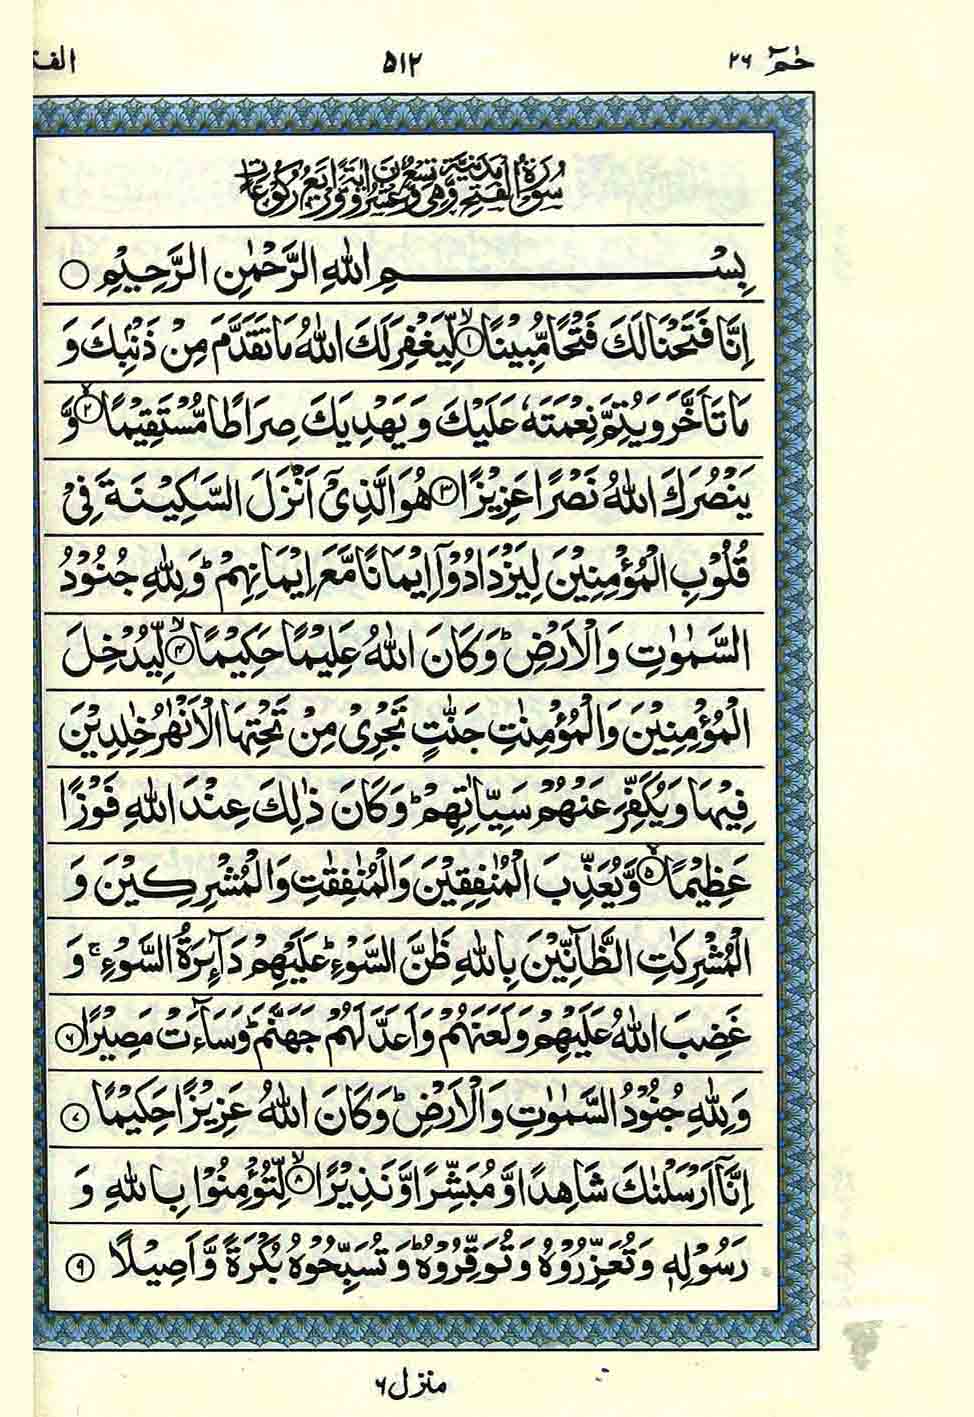 حٰمٓ ٢٦
۵۱۲
الفت
سُوْرَةُ الْفَتْحِ مَدَنِيَّةٌ وَّهِيَ تِسْعٌ وَّعِشْرُوْنَ اٰيَةً وَّاَرْبَعُ رُكُوْعَاتٍ
بِسْمِ اللّٰهِ الرَّحْمٰنِ الرَّحِيْمِ ○
اِنَّا فَتَحْنَا لَكَ فَتْحًا مُّبِيْنًا ۙ﴿۱﴾ لِّيَغْفِرَ لَكَ اللّٰهُ مَا تَقَدَّمَ مِنْ ذَنْۢبِكَ وَ
مَا تَاَخَّرَ وَيُتِمَّ نِعْمَتَهٗ عَلَيْكَ وَيَهْدِيَكَ صِرَاطًا مُّسْتَقِيْمًا ۙ﴿۲﴾ وَّ
يَنْصُرَكَ اللّٰهُ نَصْرًا عَزِيْزًا ﴿۳﴾ هُوَ الَّذِيْٓ اَنْزَلَ السَّكِيْنَةَ فِيْ
قُلُوْبِ الْمُؤْمِنِيْنَ لِيَزْدَادُوْٓا اِيْمَانًا مَّعَ اِيْمَانِهِمْ ؕ وَلِلّٰهِ جُنُوْدُ
السَّمٰوٰتِ وَالْاَرْضِ ؕ وَكَانَ اللّٰهُ عَلِيْمًا حَكِيْمًا ۙ﴿۴﴾ لِّيُدْخِلَ
الْمُؤْمِنِيْنَ وَالْمُؤْمِنٰتِ جَنّٰتٍ تَجْرِيْ مِنْ تَحْتِهَا الْاَنْهٰرُ خٰلِدِيْنَ
فِيْهَا وَيُكَفِّرَ عَنْهُمْ سَيِّاٰتِهِمْ ؕ وَكَانَ ذٰلِكَ عِنْدَ اللّٰهِ فَوْزًا
عَظِيْمًا ۙ﴿۵﴾ وَّيُعَذِّبَ الْمُنٰفِقِيْنَ وَالْمُنٰفِقٰتِ وَالْمُشْرِكِيْنَ وَ
الْمُشْرِكٰتِ الظَّآنِّيْنَ بِاللّٰهِ ظَنَّ السَّوْءِ ؕ عَلَيْهِمْ دَآئِرَةُ السَّوْءِ ۚ وَ
غَضِبَ اللّٰهُ عَلَيْهِمْ وَلَعَنَهُمْ وَاَعَدَّ لَهُمْ جَهَنَّمَ ؕ وَسَآءَتْ مَصِيْرًا ﴿۶﴾
وَلِلّٰهِ جُنُوْدُ السَّمٰوٰتِ وَالْاَرْضِ ؕ وَكَانَ اللّٰهُ عَزِيْزًا حَكِيْمًا ﴿۷﴾
اِنَّآ اَرْسَلْنٰكَ شَاهِدًا وَّمُبَشِّرًا وَّنَذِيْرًا ۙ﴿۸﴾ لِّتُؤْمِنُوْا بِاللّٰهِ وَ
رَسُوْلِهٖ وَتُعَزِّرُوْهُ وَتُوَقِّرُوْهُ ؕ وَتُسَبِّحُوْهُ بُكْرَةً وَّاَصِيْلًا ﴿۹﴾
منزل ۶